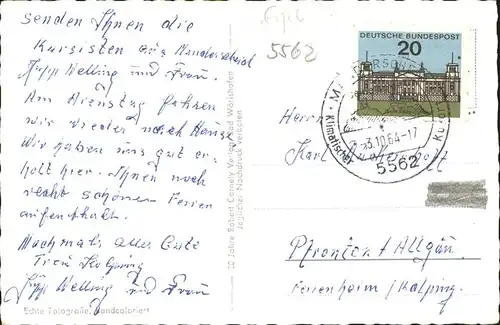 senden Ihnen die
Kursisten aus Manderscheid
Jupp Welling und Frau.
Am Dienstag fahren
wir wieder nach Hause
Wir haben uns gut er-
holt hier. Ihnen noch
recht schönen Ferien
aufenthalt.
Nochmals alles Gute
Treu Kolping
Jupp Welling und Frau
Echte Fotografie, handcoloriert
10 Jahre Robert Cornely Verlag Bad Wörishofen
Jeglicher Nachdruck verboten
Eifel
5562
DEUTSCHE BUNDESPOST
20
Klimatischer Kurort
-3.10.64-17
5562
Herrn
Karl
Pfronten / Allgäu
Ferienheim / Kolping